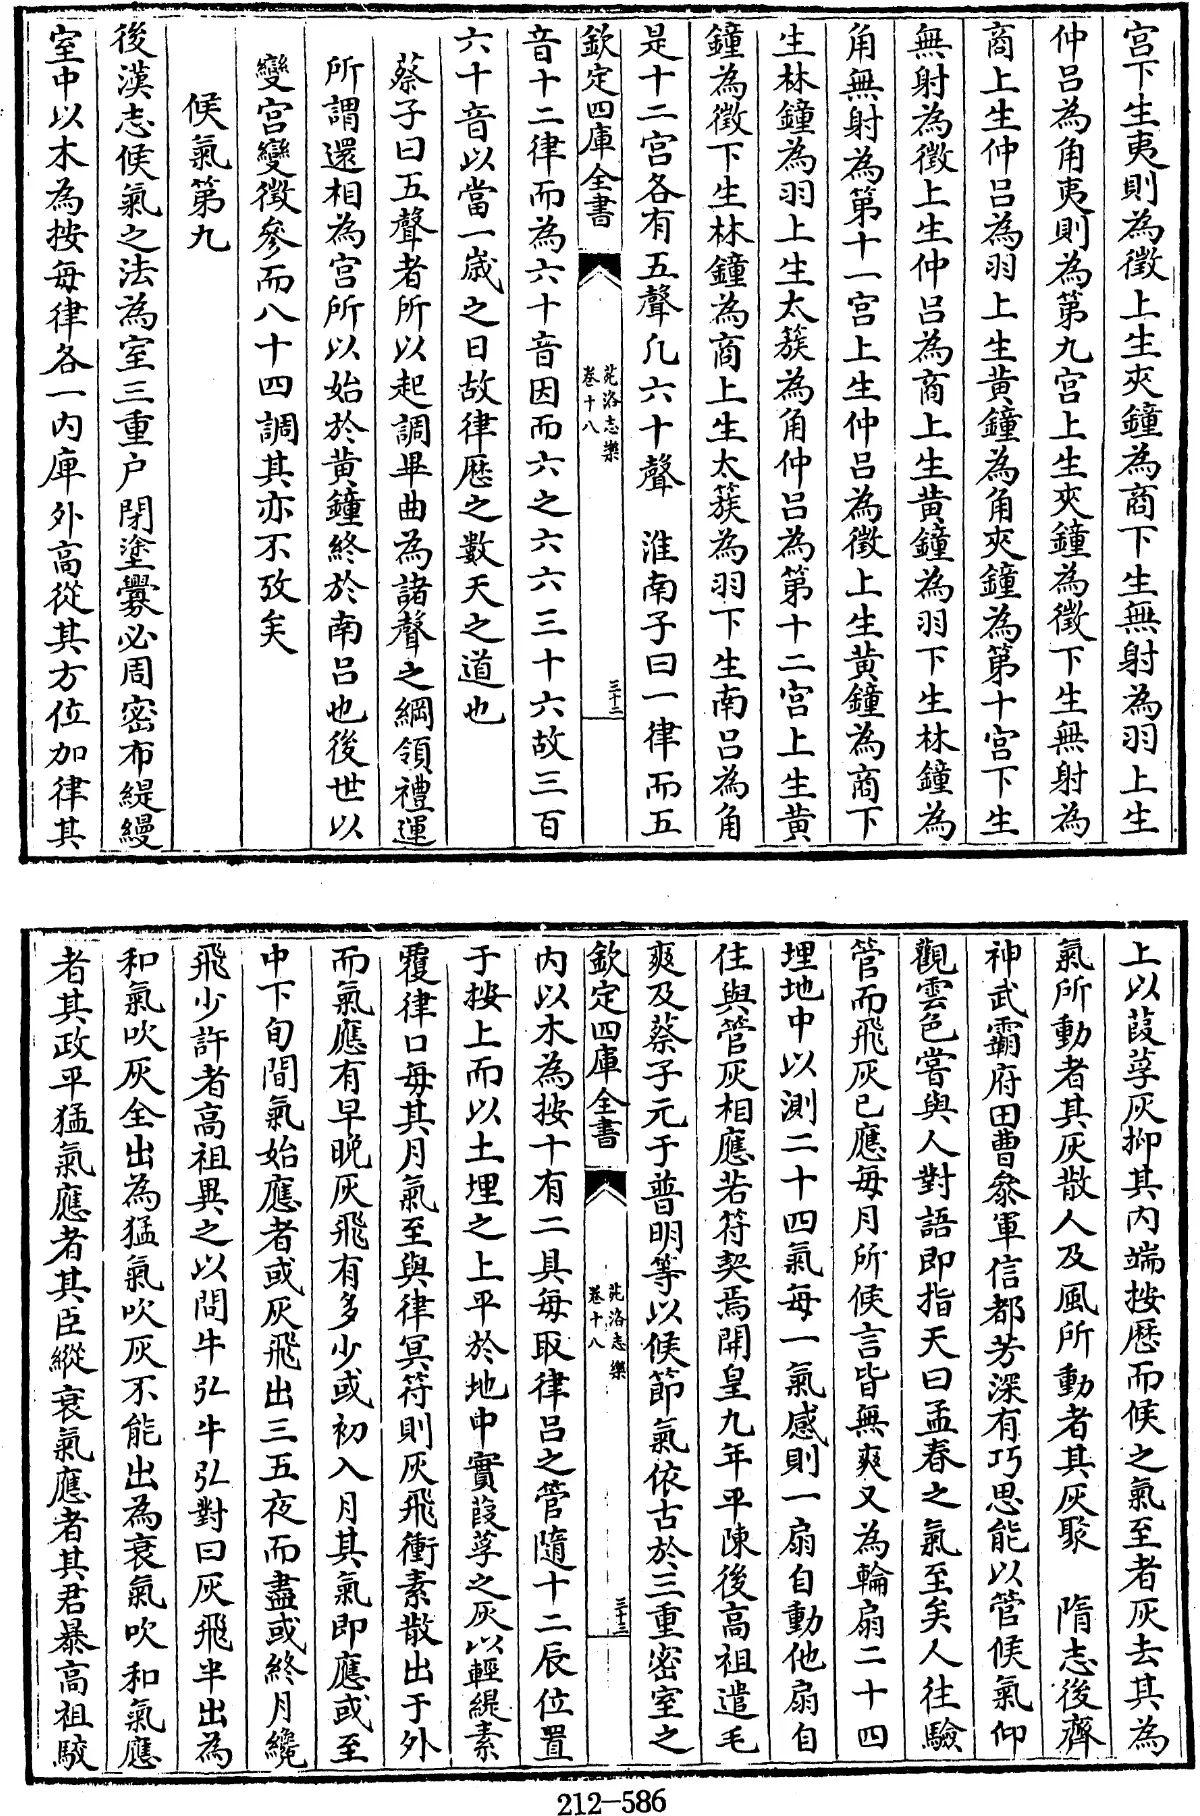 宫下生夷則為徵上生夾鐘為商下生無射為羽上生
仲吕為角夷則為第九宫上生夾鐘為徵下生無射為
商上生仲吕為羽上生黄鐘為角夾鐘為第十宫下生
無射為徵上生仲吕為商上生黄鐘為羽下生林鐘為
角無射為第十一宫上生仲吕為徵上生黄鐘為商下
生林鐘為羽上生太簇為角仲吕為第十二宫上生黄
鐘為徵下生林鐘為商上生太簇為羽下生南吕為角
是十二宫各有五聲凡六十聲　淮南子曰一律而五
欽定四庫全書
苑洛志樂
卷十八
三十二
音十二律而為六十音因而六之六六三十六故三百
六十音以當一歳之日故律厯之數天之道也
蔡子曰五聲者所以起調畢曲為諸聲之綱領禮運
所謂還相為宫所以始於黄鐘終於南吕也後世以
變宫變徵參而八十四調其亦不攷矣
候氣第九
後漢志候氣之法為室三重户閉塗釁必周密布緹縵
室中以木為按每律各一内庳外高從其方位加律其
上以葭莩灰抑其内端按厯而候之氣至者灰去其為
氣所動者其灰散人及風所動者其灰聚　隋志後齊
神武霸府田曹叅軍信都芳深有巧思能以管候氣仰
觀雲色嘗與人對語即指天曰孟春之氣至矣人往驗
管而飛灰已應每月所候言皆無爽又為輪扇二十四
埋地中以測二十四氣每一氣感則一扇自動他扇自
住與管灰相應若符契焉開皇九年平陳後高祖遣毛
爽及蔡子元于普明等以候節氣依古於三重密室之
欽定四庫全書
苑洛志樂
卷十八
三十三
内以木為按十有二具每取律吕之管隨十二辰位置
于按上而以土埋之上平於地中實葭莩之灰以輕緹素
覆律口每其月氣至與律冥符則灰飛衝素散出于外
而氣應有早晚灰飛有多少或初入月其氣即應或至
中下旬間氣始應者或灰飛出三五夜而盡或終月纔
飛少許者高祖異之以問牛弘牛弘對曰灰飛半出為
和氣吹灰全出為猛氣吹灰不能出為衰氣吹和氣應
者其政平猛氣應者其臣縱衰氣應者其君暴高祖駮
212-586